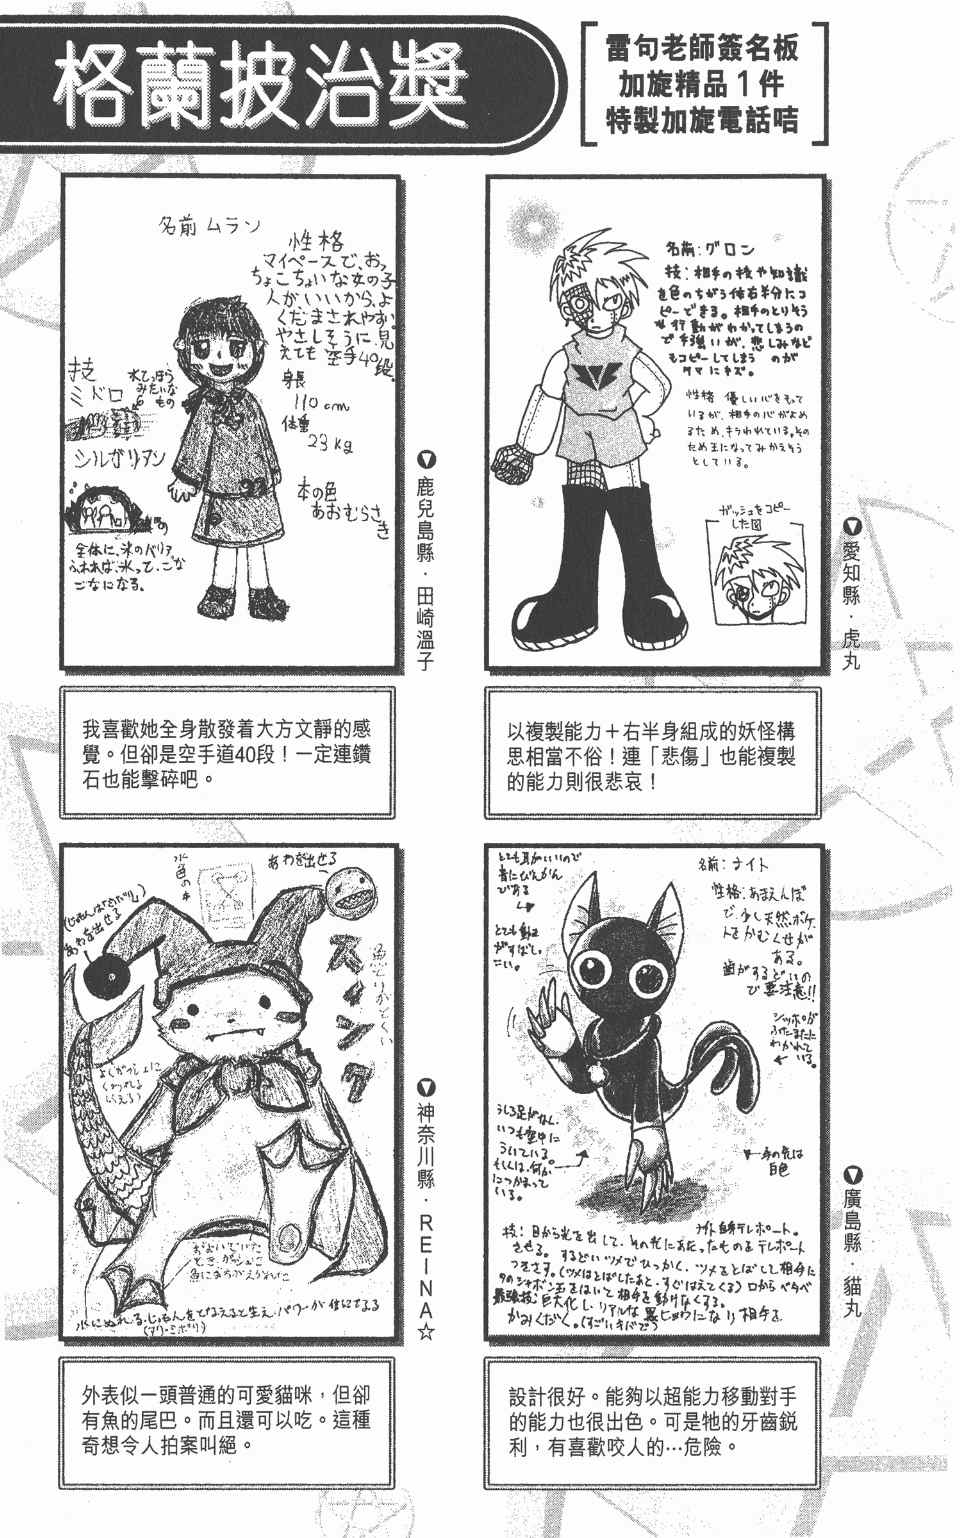 格蘭披治獎
雷句老師簽名板
加旋精品1件
特製加旋電話咭
名前 ムラン
性格
マイペースで、おっ
ちょこちょいな女の子
人がいいから、よ
くだまされやすい
やさしそうに、見
えても 空手40段。
身長
110cm
体重
23kg
本の色
あおむらさ
き
技
ミドロ
水てっぽう
みたいな
もの
シルガリアン
全体に、氷のバリア
ふれれば、氷って、こな
ごなになる。
▼鹿兒島縣・田崎溫子
我喜歡她全身散發着大方文靜的感
覺。但卻是空手道40段！一定連鑽
石也能擊碎吧。
名前：グロン
技：相手の技や知識
を色のちがう体右半分にコ
ピーできる。相手のとりそう
な行動がわかってしまうの
で手強いが、悲しみなど
もコピーしてしまう のが
タマにキズ。
性格 優しい心をもって
いるが、相手の心がよめ
るため、キラわれている。その
ため王になってみかえそう
としている。
ガッシュをコピー
した図
▼愛知縣・虎丸
以複製能力＋右半身組成的妖怪構
思相當不俗！連「悲傷」也能複製
的能力則很悲哀！
水色の本
あわを出せる
あわを出せる
スインク
魚とりがとくい
おいでいた
とき、ガッシュに
魚にまちがえられた
▼神奈川縣・REINA☆
外表似一頭普通的可愛貓咪，但卻
有魚的尾巴。而且還可以吃。這種
奇想令人拍案叫絕。
とても耳がいいので
音にびんかん
である
とても動き
がすばしっ
こい。
名前：ナイト
性格：あまえんぼ
で、少し天然ボケ。
人をかむくせが
ある。
歯がするどいの
で要注意!!
シッポが
ふたまたに
わかれて
いる。
うしろ足がなく、
いつも空中に
ういている。
もしくは、何か
につかまって
いる。
手の先は
白色
技：目から光を出して、その光にあたったものをテレポート
させる。するどいツメでひっかく、ツメをとばしし相手に
つきさす。(ツメはとばしたあと、すぐはえてくる)口からベタベタ
のシャボン玉をはいて相手を動けなくする。
最強技：巨大化し、リアルな黒じゅうになり相手を
かみくだく。(すごいキバで)
▼廣島縣・貓丸
設計很好。能夠以超能力移動對手
的能力也很出色。可是牠的牙齒銳
利，有喜歡咬人的…危險。